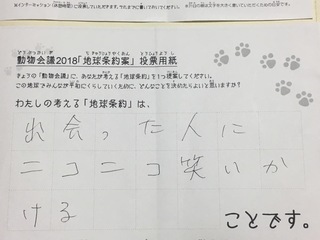 動物会議2018「地球条約案」投票用紙
キョウの「動物会議」に、あなたが考える「地球条約」を1つ提案してください。
この地球でみんなが平和にくらしていくために、どんなことを決めたらよいと思いますか?
わたしの考える「地球条約」は、
出会った人に
ニコニコ笑いか
ける
ことです。